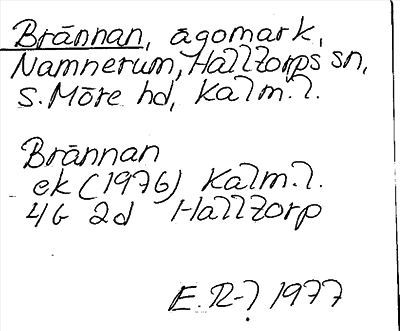 Brännan, ägomark,
Namnerum, Halltorps sn,
S. Möre hd, Kalm. l.
Brännan
ek (1976) Kalm. l.
4G 2d Halltorp
E. R-? 1977